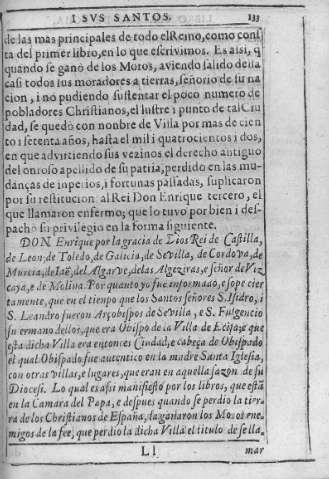 I SVS SANTOS. 133
de las mas principales de todo el Reino, como const
ta del primer libro, en lo que escrivimos. Es asi, q
quando se ganò de los Moros, aviendo salido della
casi todos sus moradores a tierras, señorio de su na
cion, i no pudiendo sustentar el poco numero de
pobladores Christianos, el lustre i punto de tal Ciu
dad, se quedò con nonbre de Villa por mas de cien
to i setenta años, hasta el mil i quatrocientos i dos,
en que advirtiendo sus vezinos el derecho antiguo
del onroso apellido de su patria, perdido en las mu-
danças de inperios, i fortunas passadas, suplicaron
por su restitucion al Rei Don Enrique tercero, el
que llamaron enfermo; que lo tuvo por bien i des-
pachò su privilegio en la forma siguiente.
DON Enrique por la gracia de Dios Rei de Castilla,
de Leon, de Toledo, de Galicia, de Sevilla, de Cordova, de
Murcia, de Iaē, del Algarve, de las Algeziras, e señor de Viz
caya, e de Molina. Por quanto yo fue informado, e sope cier
tamente, que en el tienpo que los Santos señores S. Isidro, i
S. Leandro fueron Arçobispos de Sevilla, e S. Fulgencio
su ermano dellos, que era Obispo de la Villa de Ecija, e que
esta dicha Villa era entonces Ciudad, e cabeça de Obispado
el qual Obispado fue autentico en la madre Santa Iglesia,
con otras villas, e lugares, que eran en aquella sazon de su
Diocesi. Lo qual es assi manifiesto por los libros, que està
en la Camara del Papa, e despues quando se perdio la tier-
ra de los Christianos de España, la ganaron los Moros ene
migos de la fee, que perdio la dicha Villa el titulo de se lla-
Ll mar